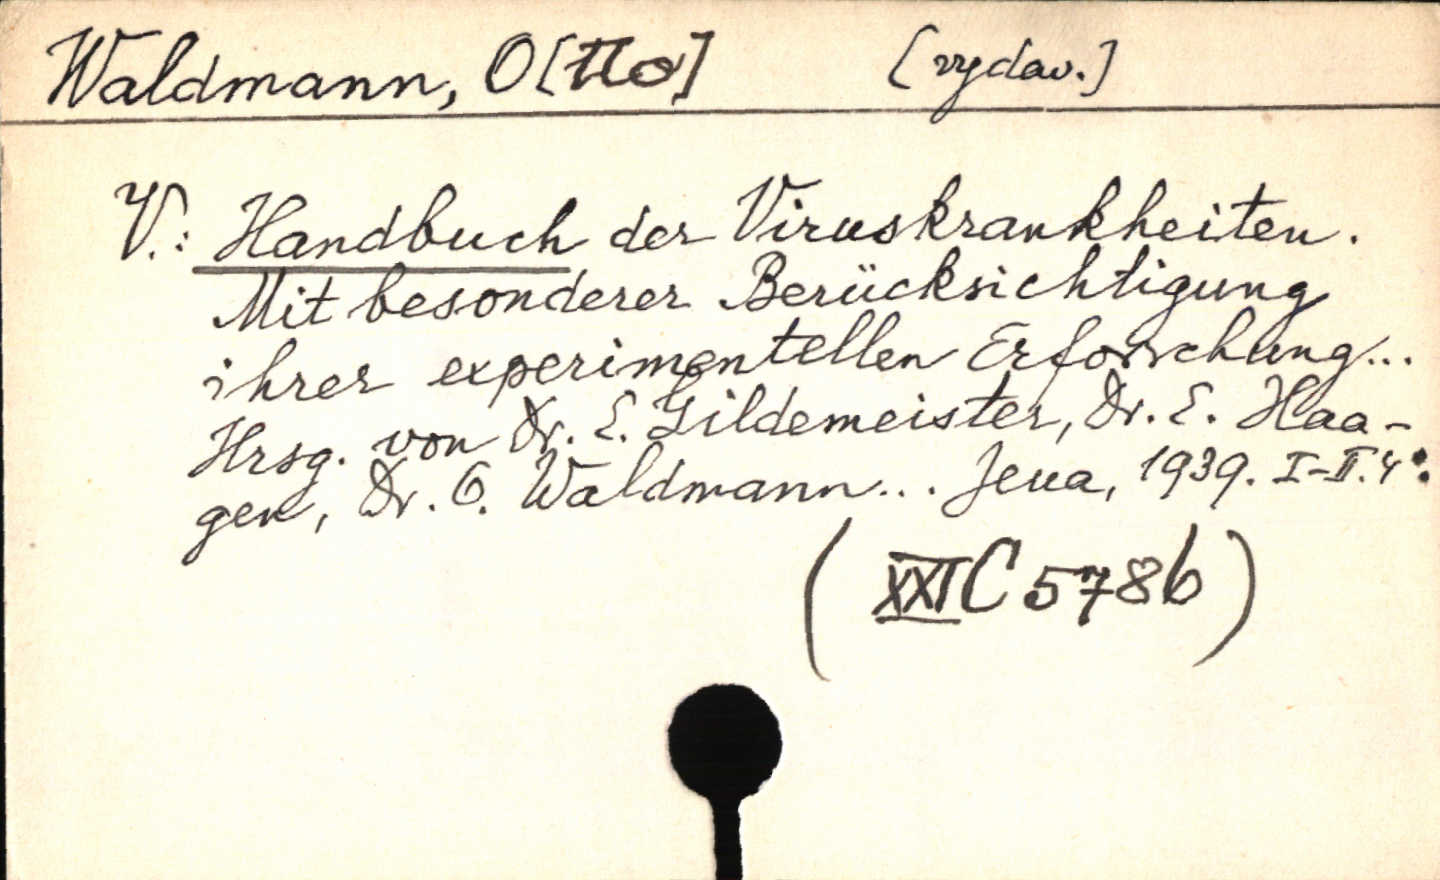 Waldmann, O[tto] [vydav.]
V.: Handbuch der Viruskrankheiten.
Mit besonderer Berücksichtigung
ihrer experimentellen Erforschung...
Hrsg. von Dr. E. Gildemeister, Dr. E. Haa-
gen, Dr. O. Waldmann... Jena, 1939. I-II. 4°.
(XXI C 578b)